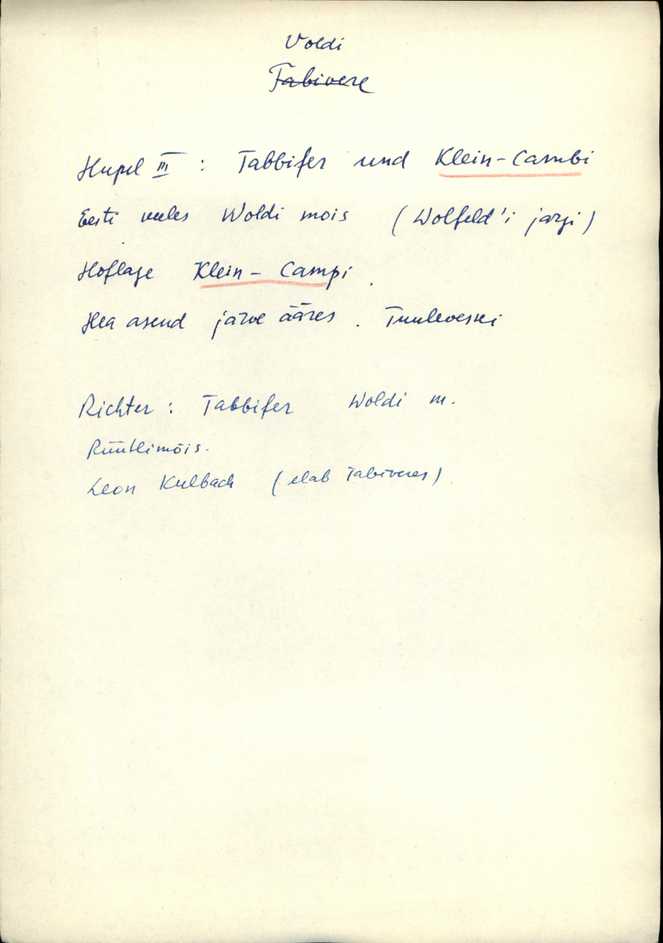 Voldi
Tabivere
Hupel III : Tabbifer und Klein-Cambi
Eesti keeles Woldi mois (Wolfeld'i järgi)
Hoflage Klein - Campi.
Hea asend järve ääres. Tuuleveski
Richter: Tabbifer Woldi m.
Rüütlimõis.
Leon Kulbach (elab Tabiveres)